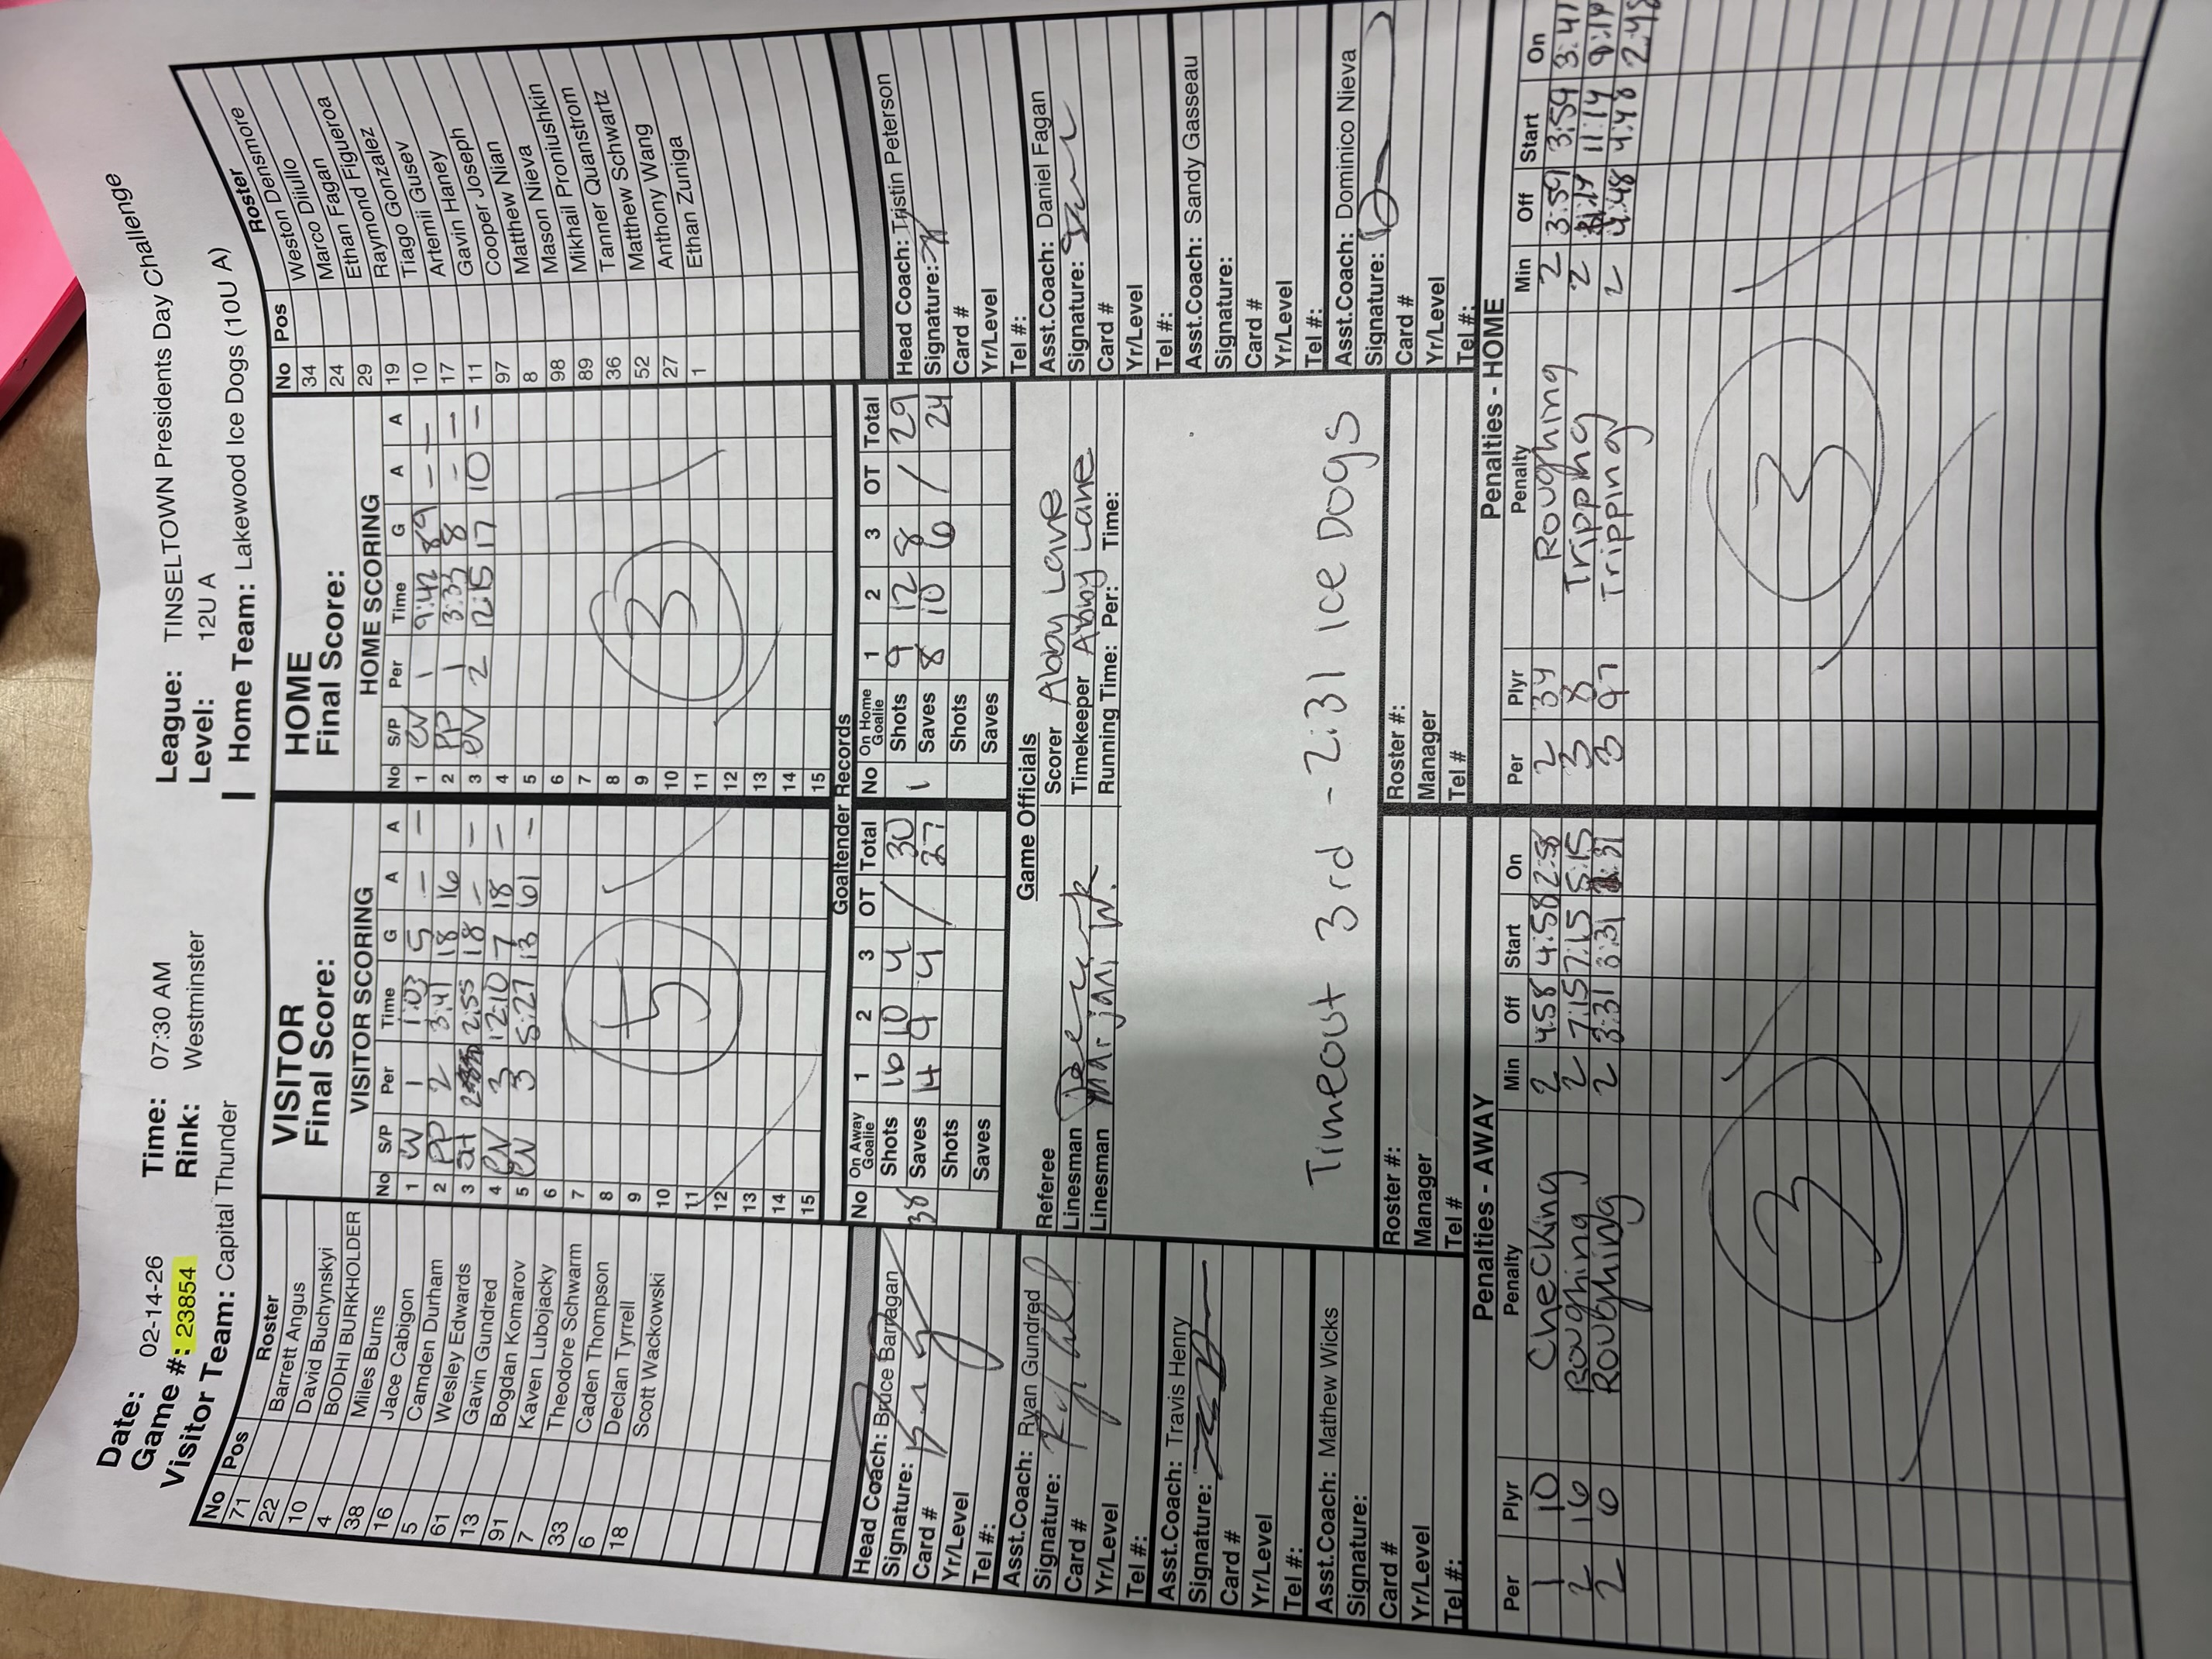 Date: 02-14-26 Time: 07:30 AM League: TINSELTOWN Presidents Day Challenge
Game #: 23854 Rink: Westminster Level: 12U A
Visitor Team: Capital Thunder Home Team: Lakewood Ice Dogs (10U A)
No Pos Roster
71 Barrett Angus
22 David Buchynskyi
10 BODHI BURKHOLDER
4 Miles Burns
38 Jace Cabigon
16 Camden Durham
5 Wesley Edwards
61 Gavin Gundred
13 Bogdan Komarov
91 Kaven Lubojacky
7 Theodore Schwarm
33 Caden Thompson
6 Declan Tyrrell
18 Scott Wackowski
VISITOR
Final Score: 5
VISITOR SCORING
No S/P Per Time G A A
1 EV 1 1:03 5 — —
2 PP 2 3:41 18 16
3 SH 2 2:55 18 — —
4 EV 3 12:10 7 18 —
5 EV 3 5:27 13 61 —
6
7
8
9
10
11
12
13
14
15
HOME
Final Score: 3
HOME SCORING
No S/P Per Time G A A
1 EV 1 9:42 89 — —
2 PP 1 3:33 8 — —
3 EV 2 12:15 17 10 —
4
5
6
7
8
9
10
11
12
13
14
15
No Pos Roster
34 Weston Densmore
24 Marco Diiullo
29 Ethan Fagan
19 Raymond Figueroa
10 Tiago Gonzalez
17 Artemii Gusev
11 Gavin Haney
97 Cooper Joseph
8 Matthew Nian
98 Mason Nieva
89 Mikhail Proniushkin
36 Tanner Quanstrom
52 Matthew Schwartz
27 Anthony Wang
1 Ethan Zuniga
Goaltender Records
No On Away Goalie 1 2 3 OT Total
38 Shots 16 10 4 / 30
Saves 14 9 4 27
Shots
Saves
No On Home Goalie 1 2 3 OT Total
1 Shots 9 12 8 / 29
Saves 8 10 6 24
Shots
Saves
Head Coach: Bruce Barragan
Signature:
Card #
Yr/Level
Tel #:
Asst.Coach: Ryan Gundred
Signature:
Card #
Yr/Level
Tel #:
Asst.Coach: Travis Henry
Signature:
Card #
Yr/Level
Tel #:
Asst.Coach: Mathew Wicks
Signature:
Card #
Yr/Level
Tel #:
Game Officials
Referee Scorer Abby Lane
Linesman Timekeeper Abby Lane
Linesman Running Time: Per: Time:
Timeout 3rd - 2:31 Ice Dogs
Roster #: Roster #:
Manager Manager
Tel # Tel #
Head Coach: Tristin Peterson
Signature:
Card #
Yr/Level
Tel #:
Asst.Coach: Daniel Fagan
Signature:
Card #
Yr/Level
Tel #:
Asst.Coach: Sandy Gasseau
Signature:
Card #
Yr/Level
Tel #:
Asst.Coach: Dominico Nieva
Signature:
Card #
Yr/Level
Tel #:
Penalties - AWAY
Per Plyr Penalty Min Off Start On
1 10 Checking 2 4:58 4:58 2:58
2 16 Roughing 2 7:15 7:15 5:15
2 6 Roughing 2 3:31 3:31
3
Penalties - HOME
Per Plyr Penalty Min Off Start On
2 34 Roughing 2 3:59 3:59 3:41
3 8 Tripping 2 11:14 11:14 9:14
3 97 Tripping 2 4:48 4:48 2:48
3